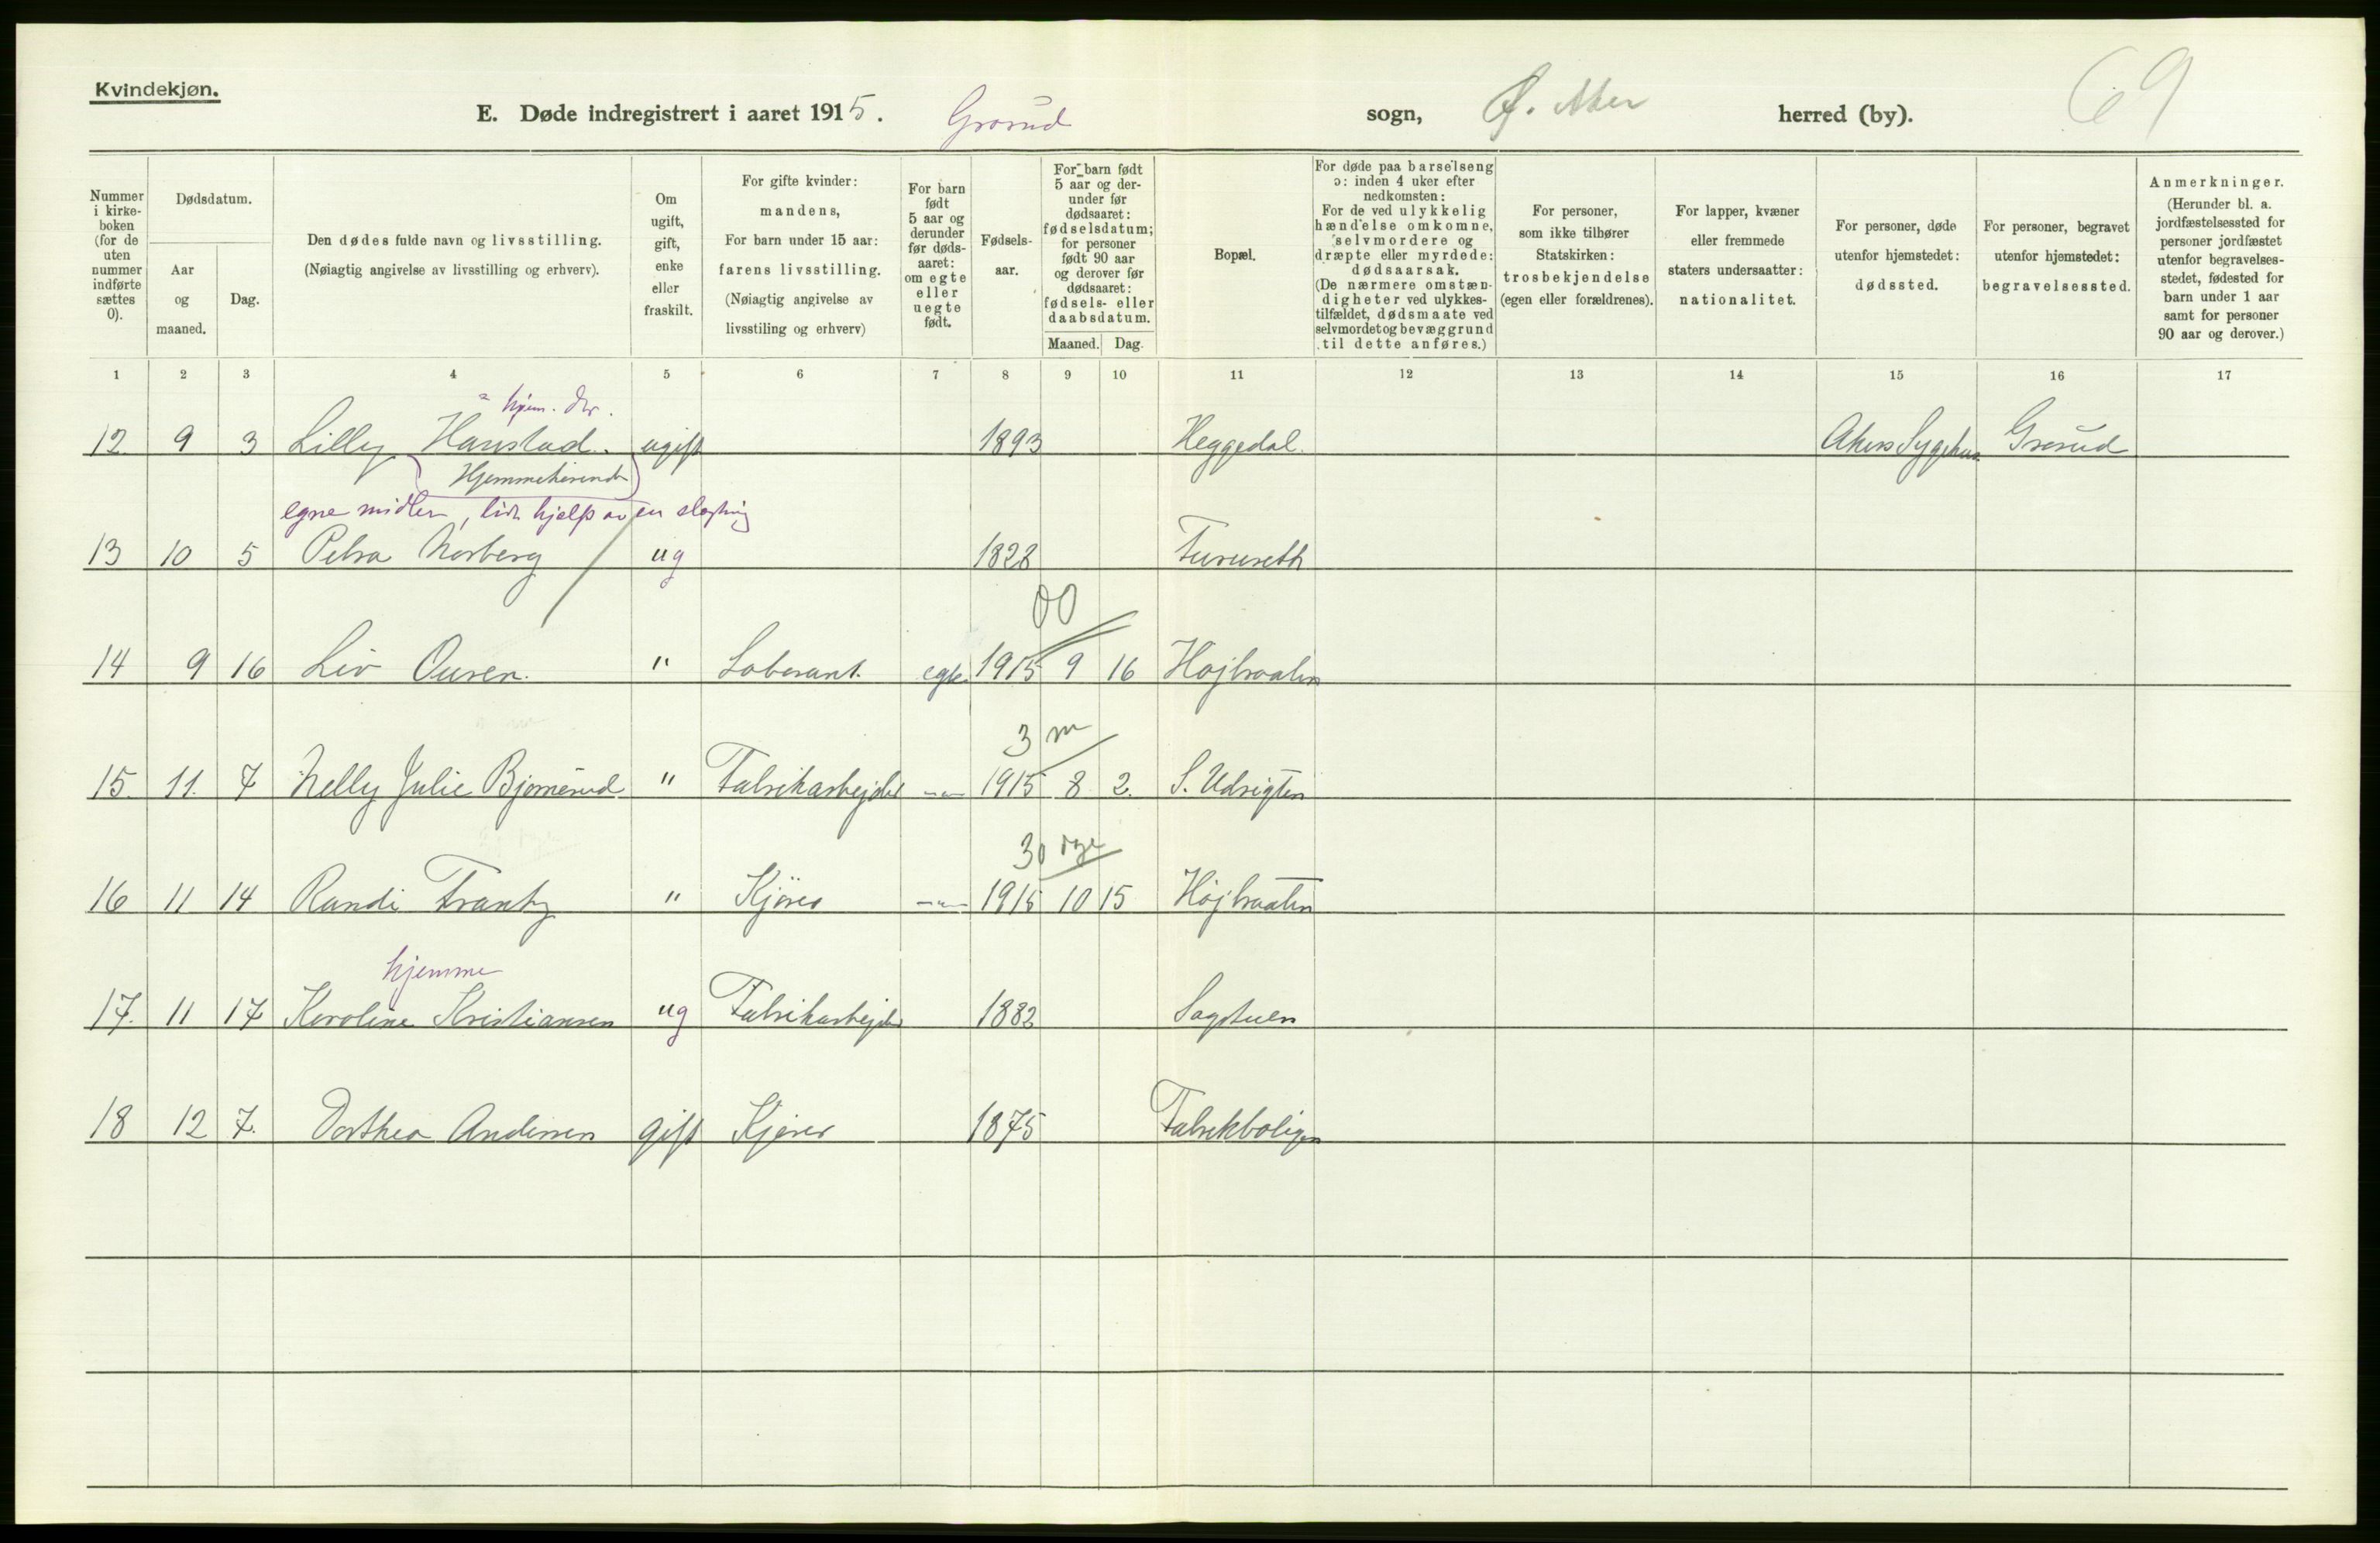 Kvindekjøn.
E. Døde indregistrert i aaret 1915. Grorud sogn, Ø. Aker herred (by). 69
Nummer i kirkeboken (for de uten nummer indførte sættes 0).
Dødsdatum.
Aar og maaned.
Dag.
Den dødes fulde navn og livsstilling.
(Nøiagtig angivelse av livsstilling og erhverv).
Om ugift, gift, enke eller fraskilt.
For gifte kvinder: mandens,
For barn under 15 aar: farens livsstilling.
(Nøiagtig angivelse av livsstiling og erhverv)
For barn født 5 aar og derunder før dødsaaret: om egte eller uegte født.
Fødselsaar.
For barn født 5 aar og derunder før dødsaaret: fødselsdatum; for personer født 90 aar og derover før dødsaaret: fødsels- eller daabsdatum.
Maaned. Dag.
Bopæl.
For døde paa barselseng ɔ: inden 4 uker efter nedkomsten:
For de ved ulykkelig hændelse omkomne, selvmordere og dræpte eller myrdede: dødsaarsak.
(De nærmere omstændigheter ved ulykkestilfældet, dødsmaate ved selvmordet og bevæggrund til dette anføres.)
For personer, som ikke tilhører Statskirken: trosbekjendelse (egen eller forældrenes).
For lapper, kvæner eller fremmede staters undersaatter: nationalitet.
For personer, døde utenfor hjemstedet: dødssted.
For personer, begravet utenfor hjemstedet: begravelsessted.
Anmerkninger.
(Herunder bl. a. jordfæstelsessted for personer jordfæstet utenfor begravelsesstedet, fødested for barn under 1 aar samt for personer 90 aar og derover.)
1 2 3 4 5 6 7 8 9 10 11 12 13 14 15 16 17
hjem.
12 9 3 Lilly Hanstad. ugift 1893 Heggedal. Akers Sygehus Grorud
Hjemmeværende
egne midler, lidt hjelp av en slegtning
13 10 5 Petra Norberg ug 1828 Furuseth
00
14 9 16 Liv Ousen. " Laborant. egte 1915 9 16 Højbraaten
3 m
15. 11. 7 Nelly Julie Bjørnerud " Fabrikarbejder -"- 1915 8 2. S. Udsigten
30 dage
16 11 14 Randi Frantz " Kjører -"- 1915 10 15 Højbraaten
hjemme
17. 11 17 Karoline Kristiansen ug Fabrikarbejder 1882 Sagstuen
18 12 7. Dorthea Andersen gift Kjører 1875 Fabrikboligen